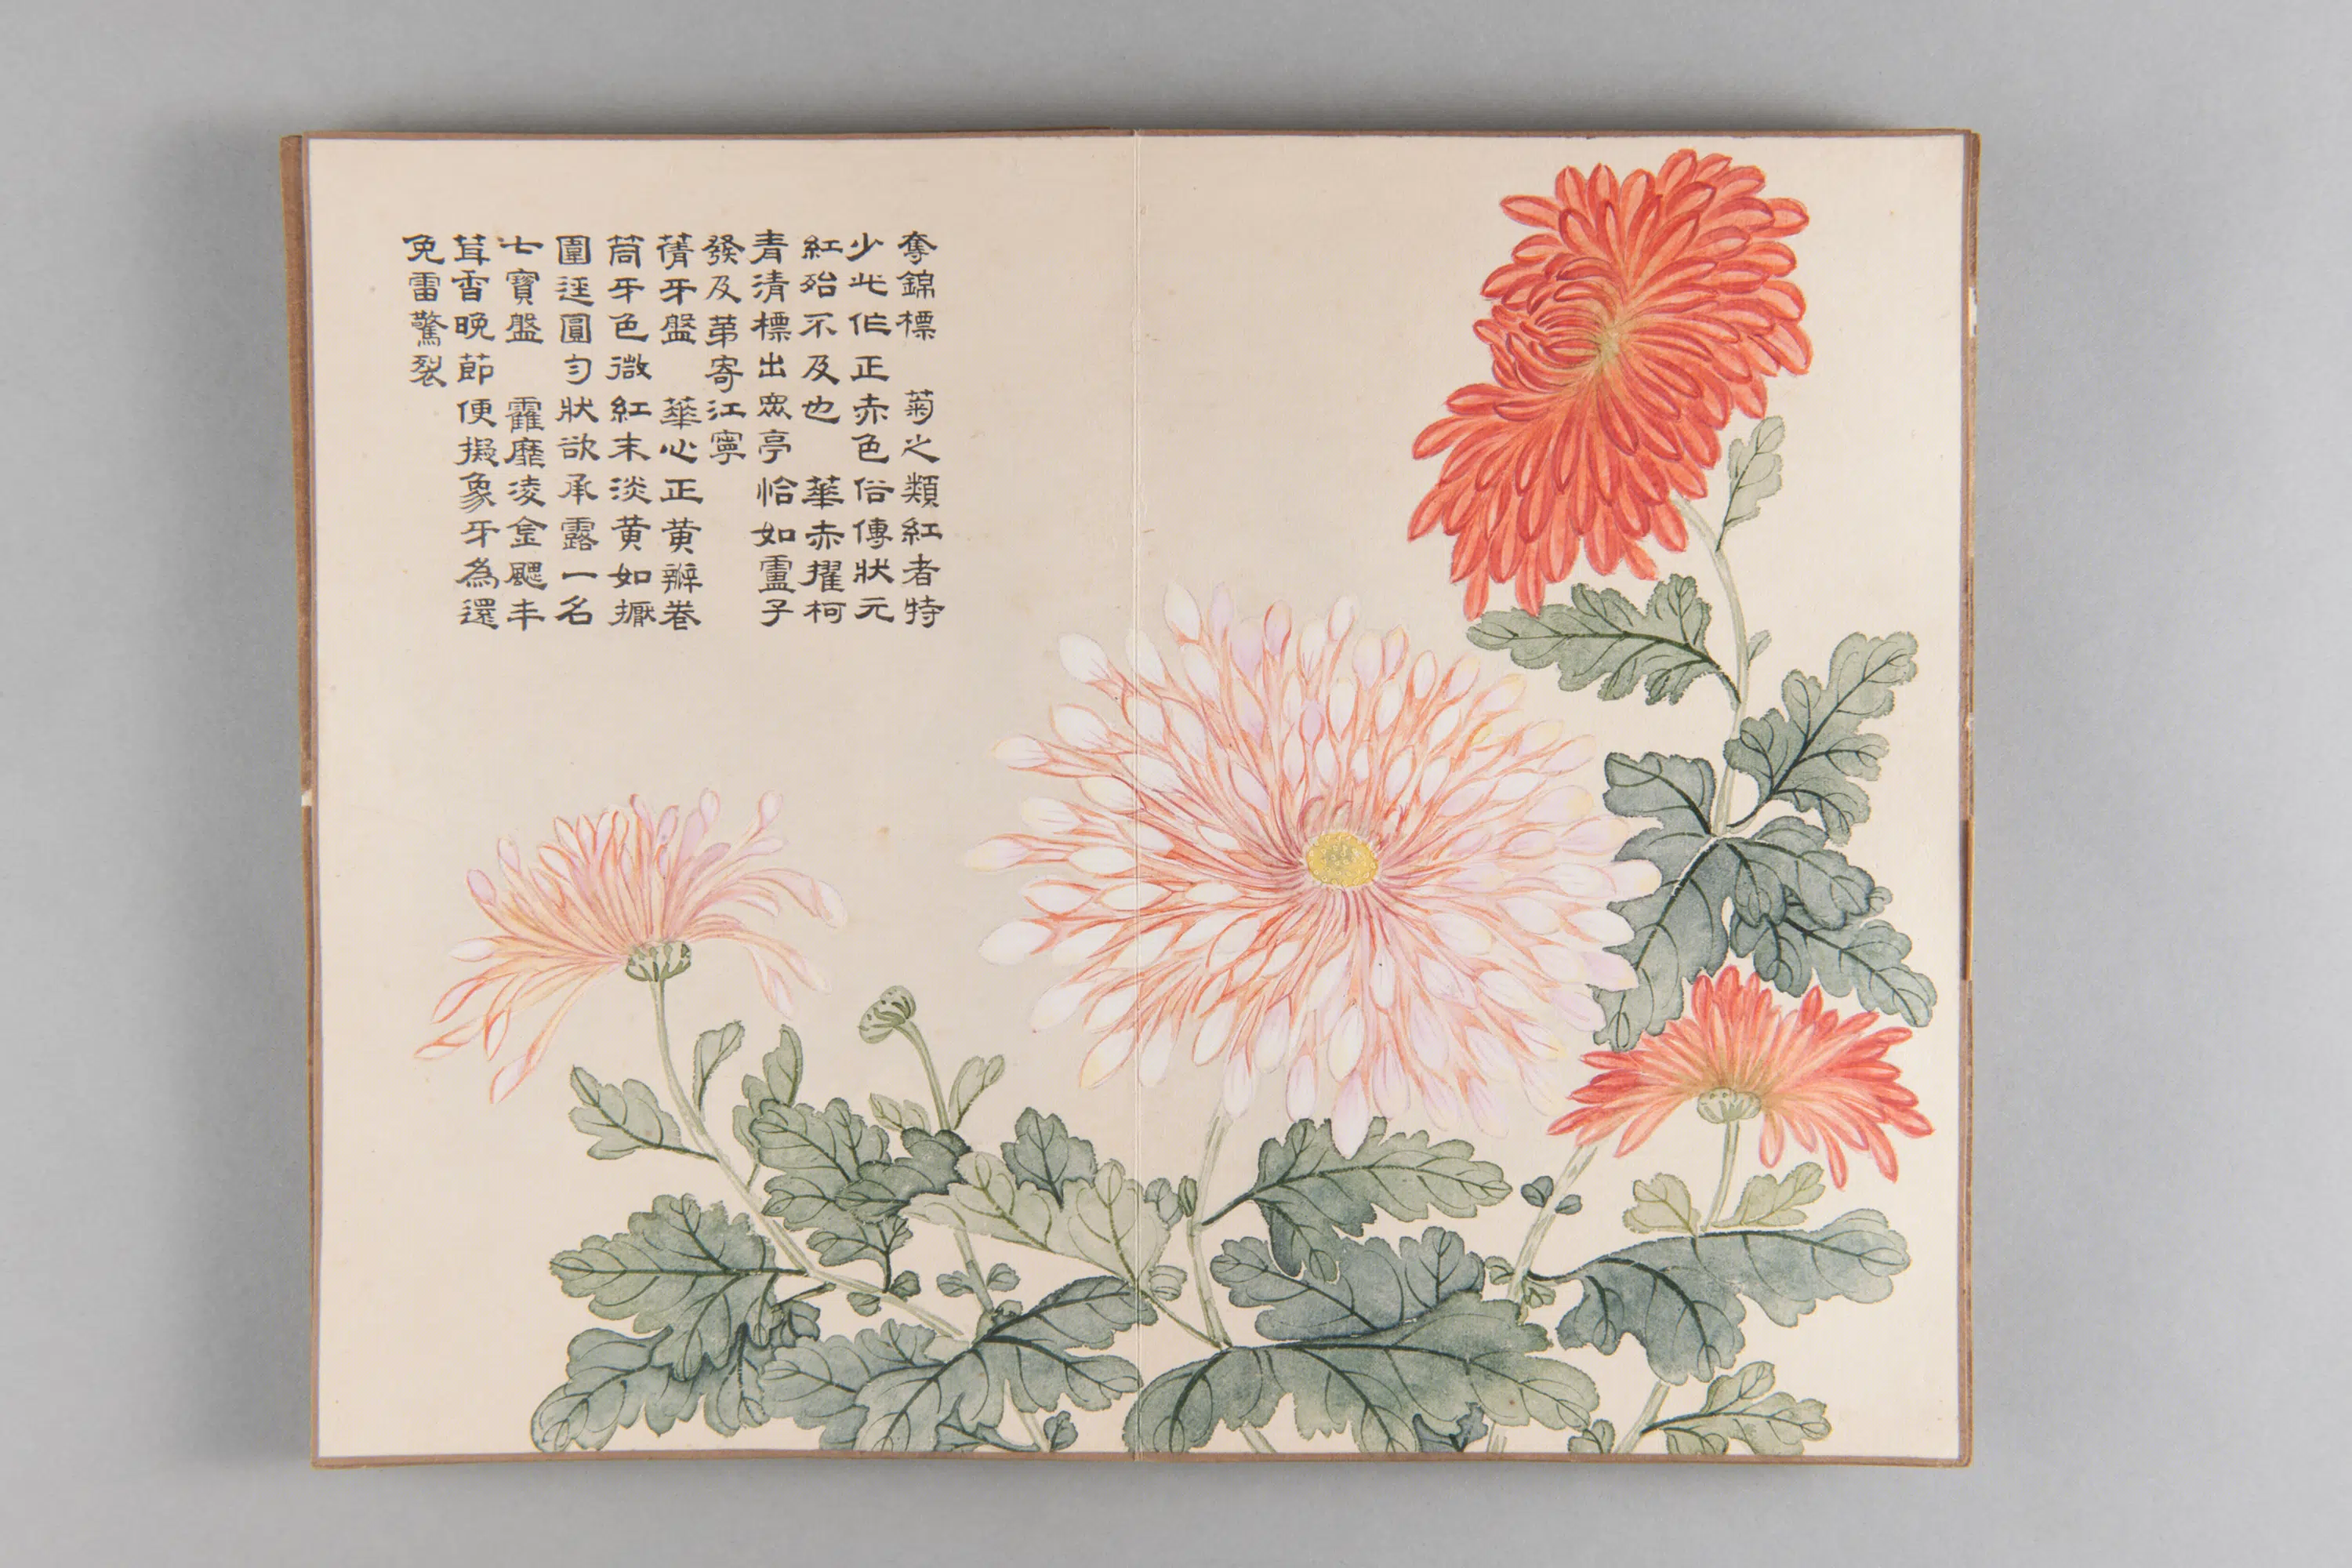 奪錦標 菊之類紅者特
少此作正赤色俗傳狀元
紅殆不及也 華赤擢柯
青清標出眾亭 恰如盧子
發及第寄江寧
蒨牙盤 華心正黃瓣卷
筒牙色微紅末淡黃如擫
圍逕圓勻狀欲承露一名
七寶盤 靃靡凌金颸丰
茸香晚節便擬象牙為還
免雷驚裂